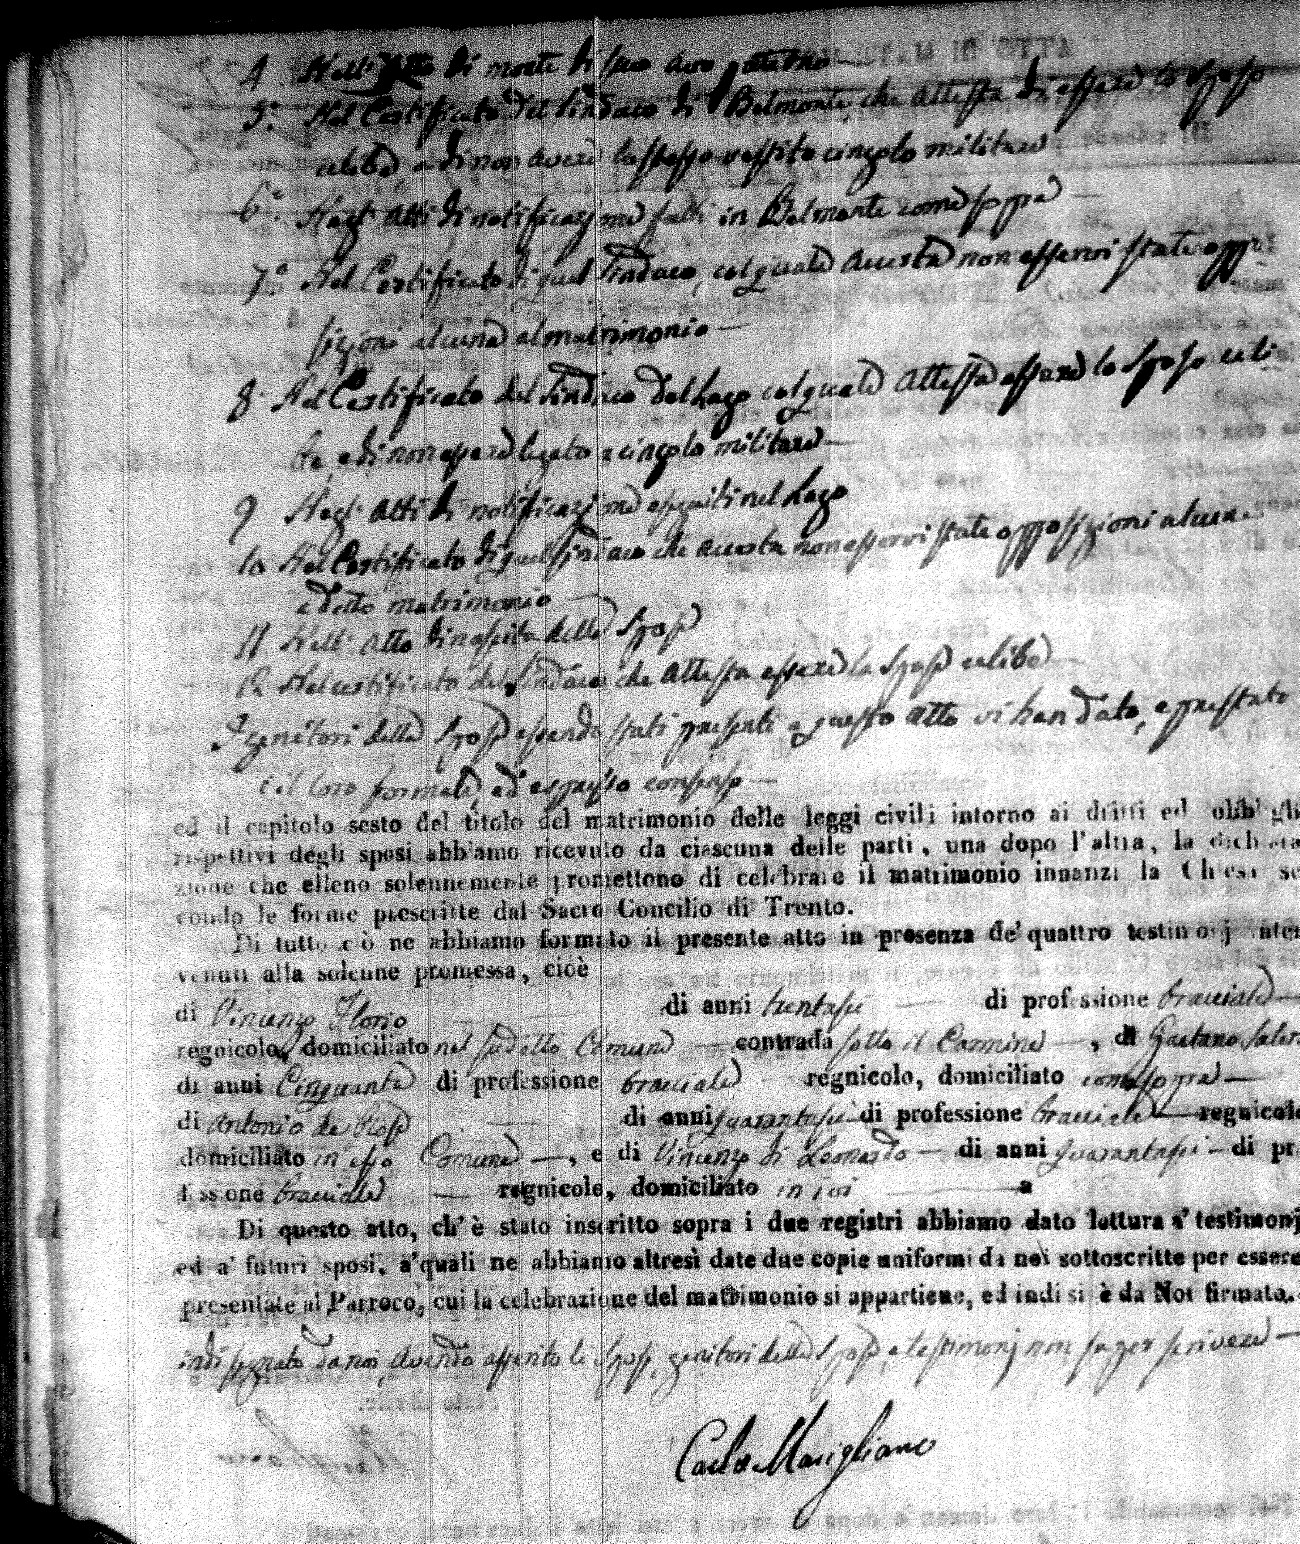 4. Nell'Atto di morte di suo avo paterno —
5.° Nel Certificato del Sindaco di Belmonte che attesta di essere lo sposo
celibe e di non avere lo stesso vestito cingolo militare
6.° Negl'Atti di notificazione fatti in Belmonte come sopra —
7.° Nel Certificato di quel Sindaco, col quale accerta non esservi state oppo-
sizioni alcune al matrimonio —
8. Nel Certificato del Sindaco del Lago col quale attesta essere lo sposo celi-
be, e di non essere legato a cingolo militare —
9 Negl'Atti di notificazione eseguiti nel Lago
10 Nel Certificato di quel Sindaco che accerta non esservi state opposizioni alcune
a detto matrimonio —
11 Nell'Atto di nascita della sposa
12 Nel certificato del Sindaco che attesta essere la sposa celibe —
I genitori della sposa essendo stati presenti a questo atto vi han dato, e prestato
il loro formale, ed espresso consenso —
ed il capitolo sesto del titolo del matrimonio delle leggi civili intorno ai dritti ed obbligh
rispettivi degli sposi abbiamo ricevuto da ciascuna delle parti, una dopo l'altra, la dichiara
zione che elleno solennemente promettono di celebrare il matrimonio innanzi la Chiesa se
condo le forme prescritte dal Sacro Concilio di Trento.
Di tutto ciò ne abbiamo formato il presente atto in presenza de' quattro testimonj inter
venuti alla solenne promessa, cioè
di Vincenzo Florio di anni trentasei — di professione bracciale —
regnicolo, domiciliato nel sudetto Comune — contrada sotto il Carmine —, di Gaetano
di anni Cinquanta di professione bracciale regnicolo, domiciliato come sopra —
di Antonio de Rose di anni quarantasei di professione bracciale — regnicolo
domiciliato in esso Comune —, e di Vincenzo di Leonardo — di anni quarantasei — di pr
fessione bracciale — regnicolo, domiciliato in ivi —
Di questo atto, ch'è stato inscritto sopra i due registri abbiamo dato lettura a' testimonj
ed a' futuri sposi, a' quali ne abbiamo altresì date due copie uniformi da noi sottoscritte per essere
presentate al Parroco, cui la celebrazione del matrimonio si appartiene, ed indi si è da Noi firmato.
indi segnato da noi, avendo asserito li sposi, genitori della sposa, e testimonj non saper scrivere —
Carlo Marigliano